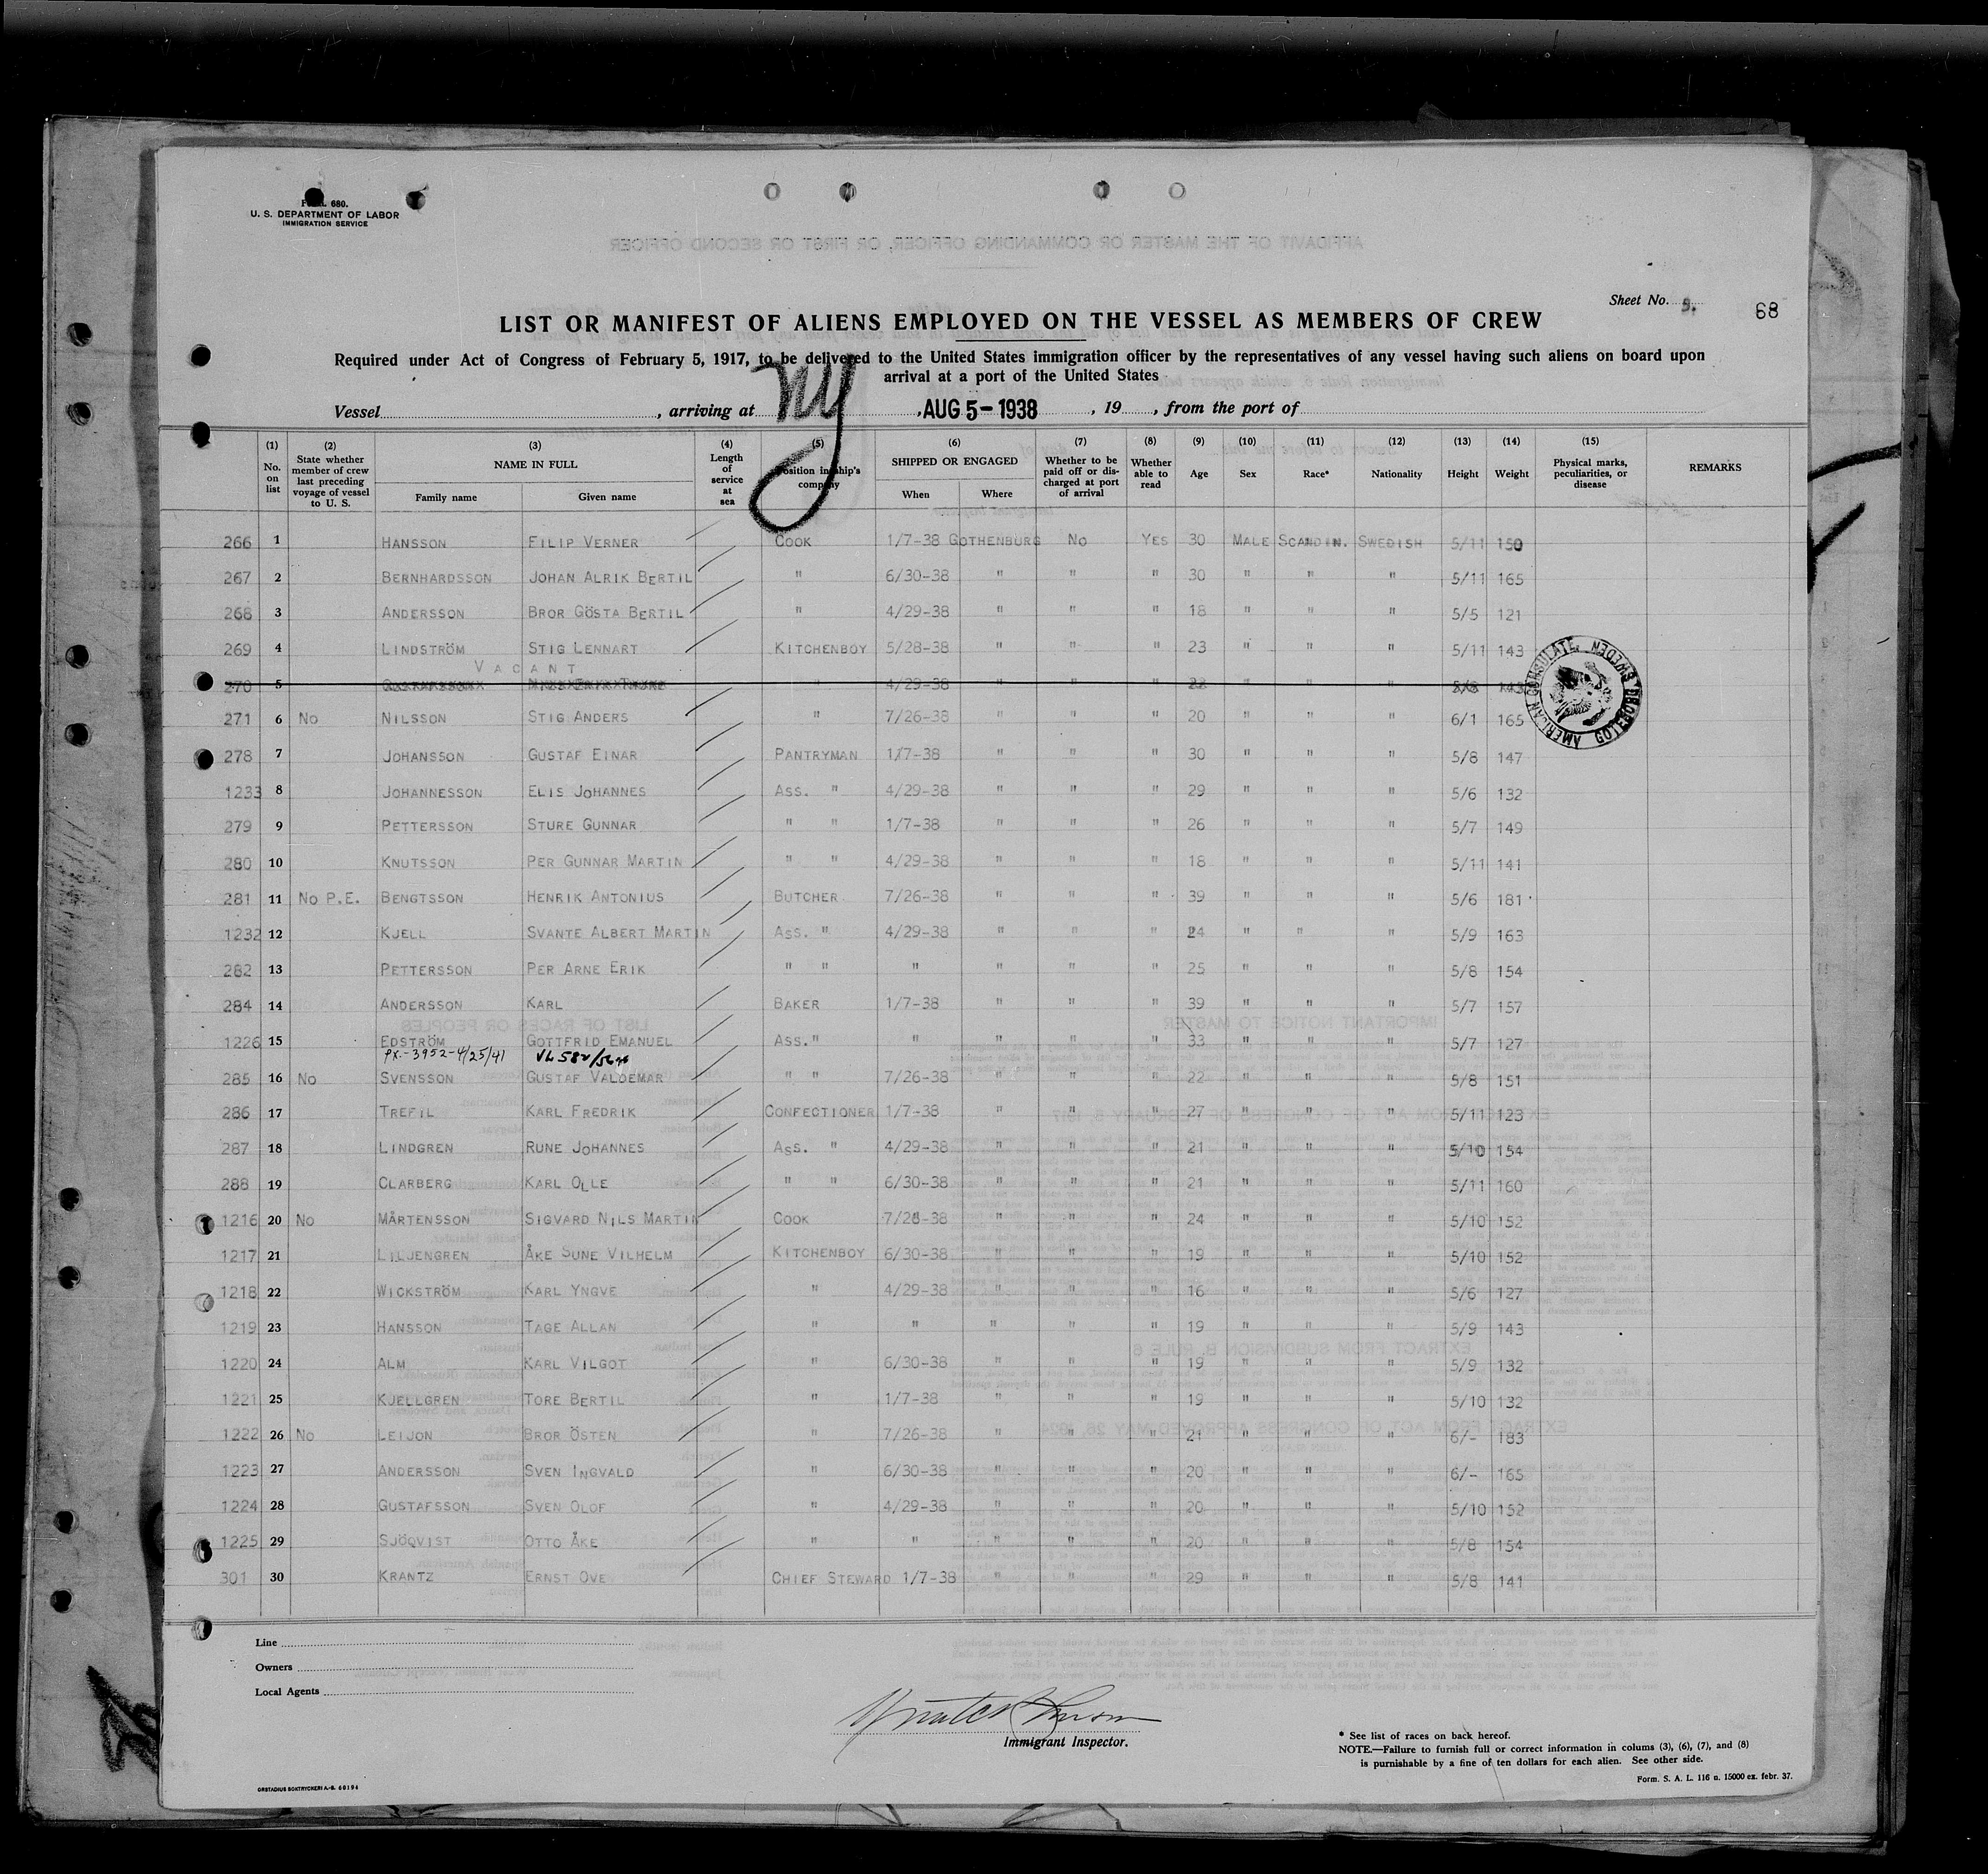 Form 680.
U. S. DEPARTMENT OF LABOR
IMMIGRATION SERVICE
Sheet No. 9. 68
LIST OR MANIFEST OF ALIENS EMPLOYED ON THE VESSEL AS MEMBERS OF CREW
Required under Act of Congress of February 5, 1917, to be delivered to the United States immigration officer by the representatives of any vessel having such aliens on board upon
arrival at a port of the United States
Vessel , arriving at NY , AUG 5 - 1938 , 19 , from the port of
(1) No. on list (2) State whether member of crew last preceding voyage of vessel to U. S. (3) NAME IN FULL Family name Given name (4) Length of service at sea (5) Position in ship's company (6) SHIPPED OR ENGAGED When Where (7) Whether to be paid off or discharged at port of arrival (8) Whether able to read (9) Age (10) Sex (11) Race* (12) Nationality (13) Height (14) Weight (15) Physical marks, peculiarities, or disease REMARKS
266 1 HANSSON FILIP VERNER COOK 1/7-38 GOTHENBURG NO YES 30 MALE SCANDIN. SWEDISH 5/11 150
267 2 BERNHARDSSON JOHAN ALRIK BERTIL " 6/30-38 " " " 30 " " " 5/11 165
268 3 ANDERSSON BROR GÖSTA BERTIL " 4/29-38 " " " 18 " " " 5/5 121
269 4 LINDSTRÖM STIG LENNART KITCHENBOY 5/28-38 " " " 23 " " " 5/11 143
VACANT
270 5 " 4/29-38 5/8 143
271 6 NO NILSSON STIG ANDERS " 7/26-38 " " " 20 " " " 6/1 165
AMERICAN CONSULATE, GOTEBORG, SWEDEN
278 7 JOHANSSON GUSTAF EINAR PANTRYMAN 1/7-38 " " " 30 " " " 5/8 147
1233 8 JOHANNESSON ELIS JOHANNES ASS. " 4/29-38 " " " 29 " " " 5/6 132
279 9 PETTERSSON STURE GUNNAR " " 1/7-38 " " " 26 " " " 5/7 149
280 10 KNUTSSON PER GUNNAR MARTIN " " 4/29-38 " " " 18 " " " 5/11 141
281 11 NO P.E. BENGTSSON HENRIK ANTONIUS BUTCHER 7/26-38 " " " 39 " " " 5/6 181
1232 12 KJELL SVANTE ALBERT MARTIN ASS. " 4/29-38 " " " 24 " " " 5/9 163
282 13 PETTERSSON PER ARNE ERIK " " " " " " 25 " " " 5/8 154
284 14 ANDERSSON KARL BAKER 1/7-38 " " " 39 " " " 5/7 157
1226 15 EDSTRÖM GOTTFRID EMANUEL ASS. " " " " " 33 " " " 5/7 127
PX.-3952-4/25/41
285 16 NO SVENSSON GUSTAF VALDEMAR " " 7/26-38 " " " 22 " " " 5/8 151
286 17 TREFIL KARL FREDRIK CONFECTIONER 1/7-38 " " " 27 " " " 5/11 123
287 18 LINDGREN RUNE JOHANNES ASS. " 4/29-38 " " " 21 " " " 5/10 154
288 19 CLARBERG KARL OLLE " " 6/30-38 " " " 21 " " " 5/11 160
1216 20 NO MÅRTENSSON SIGVARD NILS MARTIN COOK 7/26-38 " " " 24 " " " 5/10 152
1217 21 LILJENGREN ÅKE SUNE VILHELM KITCHENBOY 6/30-38 " " " 19 " " " 5/10 152
1218 22 WICKSTRÖM KARL YNGVE " 4/29-38 " " " 16 " " " 5/6 127
1219 23 HANSSON TAGE ALLAN " " " " " 19 " " " 5/9 143
1220 24 ALM KARL VILGOT " 6/30-38 " " " 19 " " " 5/9 132
1221 25 KJELLGREN TORE BERTIL " 1/7-38 " " " 19 " " " 5/10 132
1222 26 NO LEIJON BROR ÖSTEN " 7/26-38 " " " 21 " " " 6/- 183
1223 27 ANDERSSON SVEN INGVALD " 6/30-38 " " " 20 " " " 6/- 165
1224 28 GUSTAFSSON SVEN OLOF " 4/29-38 " " " 20 " " " 5/10 152
1225 29 SJÖQVIST OTTO ÅKE " " " " " 20 " " " 5/8 154
301 30 KRANTZ ERNST OVE CHIEF STEWARD 1/7-38 " " " 29 " " " 5/8 141
Line
Owners
Local Agents
Immigrant Inspector.
* See list of races on back hereof.
NOTE.—Failure to furnish full or correct information in colums (3), (6), (7), and (8)
is punishable by a fine of ten dollars for each alien. See other side.
ORSTADIUS BOKTRYCKERI A.-B. 66194
Form. S. A. L. 116 n. 15000 ex. febr. 37.